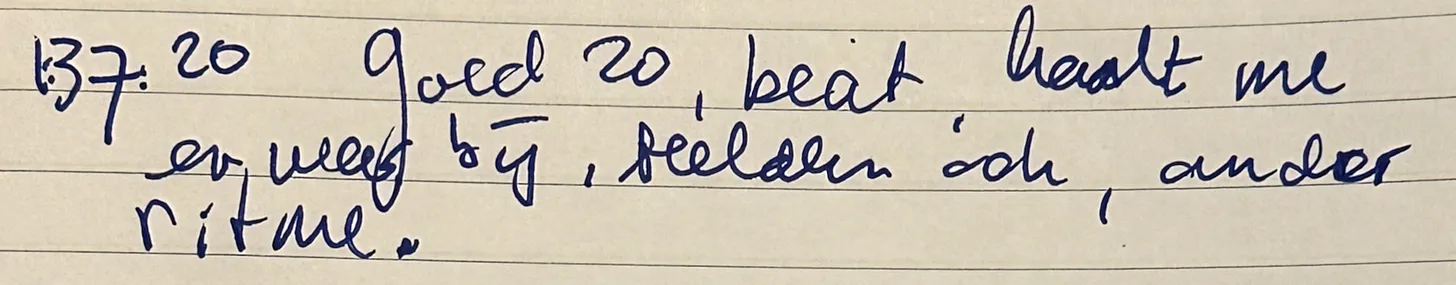 1:37:20 goed zo, beat, haalt me
er weer bij, beelden ook, ander
ritme.